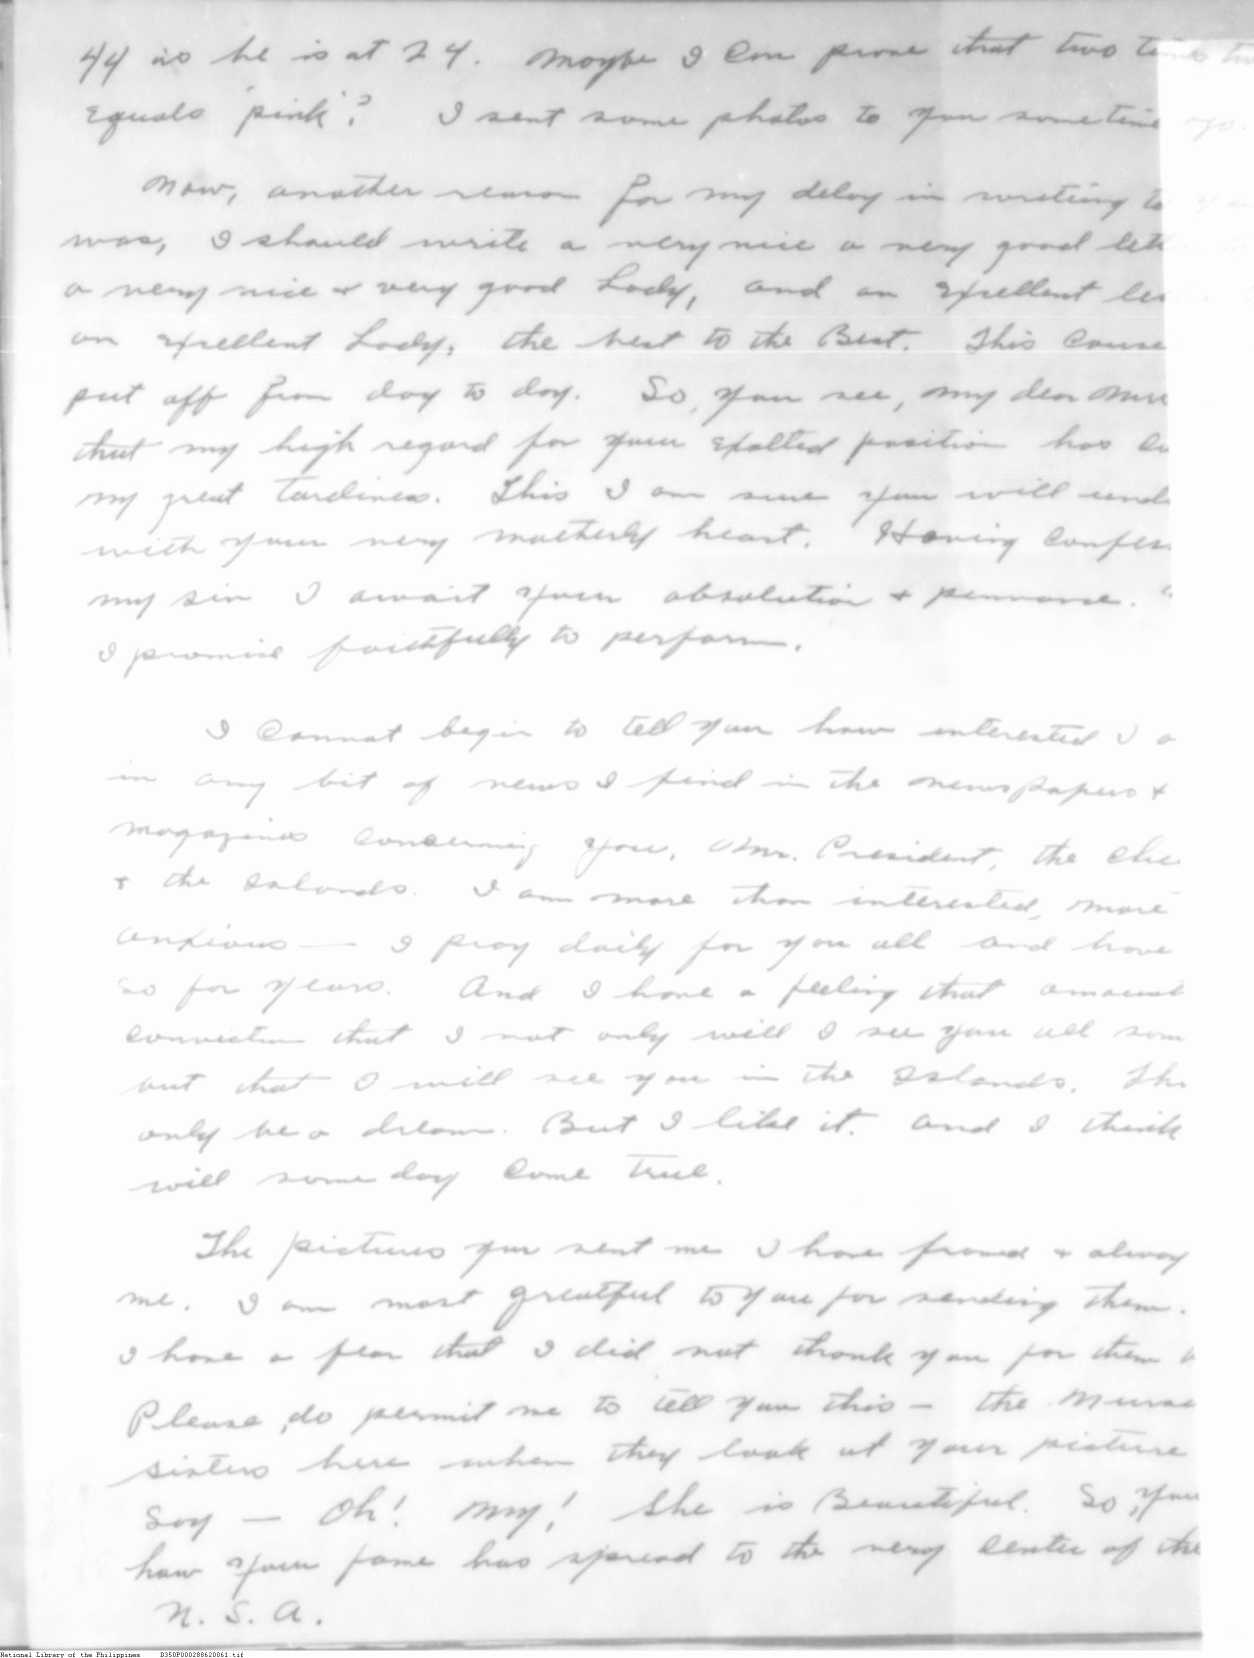 44 as he is at 24. Maybe I can prove that two times tw
Equals 'pink'? I sent some photos to you sometime
Now, another reason for my delay in writing to
was, I should write a very nice a very good lett
a very nice & very good Lady, and an Excellent le
an Excellent Lady, the best to the Best. This Cause
put off from day to day. So, you see, my dear Mrs
that my high regard for your Exalted position has
my great tardiness. This I am sure you will und
with your very motherly heart. Having Confes
my sin I await your absolution & pennance.
I promise faithfully to perform.
I Cannot begin to tell you how interested I a
in any bit of news I find in the newspapers &
magazines Concerning you, Mr. President, the
& the Islands. I am more than interested, more
anxious — I pray daily for you all and have
so for years. And I have a feeling that amount
Conviction that I not only will I see you all som
but that I will see you in the Islands. Th
only be a dream. But I like it. And I think
will some day Come true.
The pictures you sent me I have framed & alway
me. I am most greatful to you for sending them.
I have a fear that I did not thank you for them
Please, do permit me to tell you this — the Nurse
sisters here when they look at your picture
Say — Oh! My! She is Beautiful. So, you
how your fame has spread to the very Center of the
N. S. A.
National Library of the Philippines D350P000288620061.tif